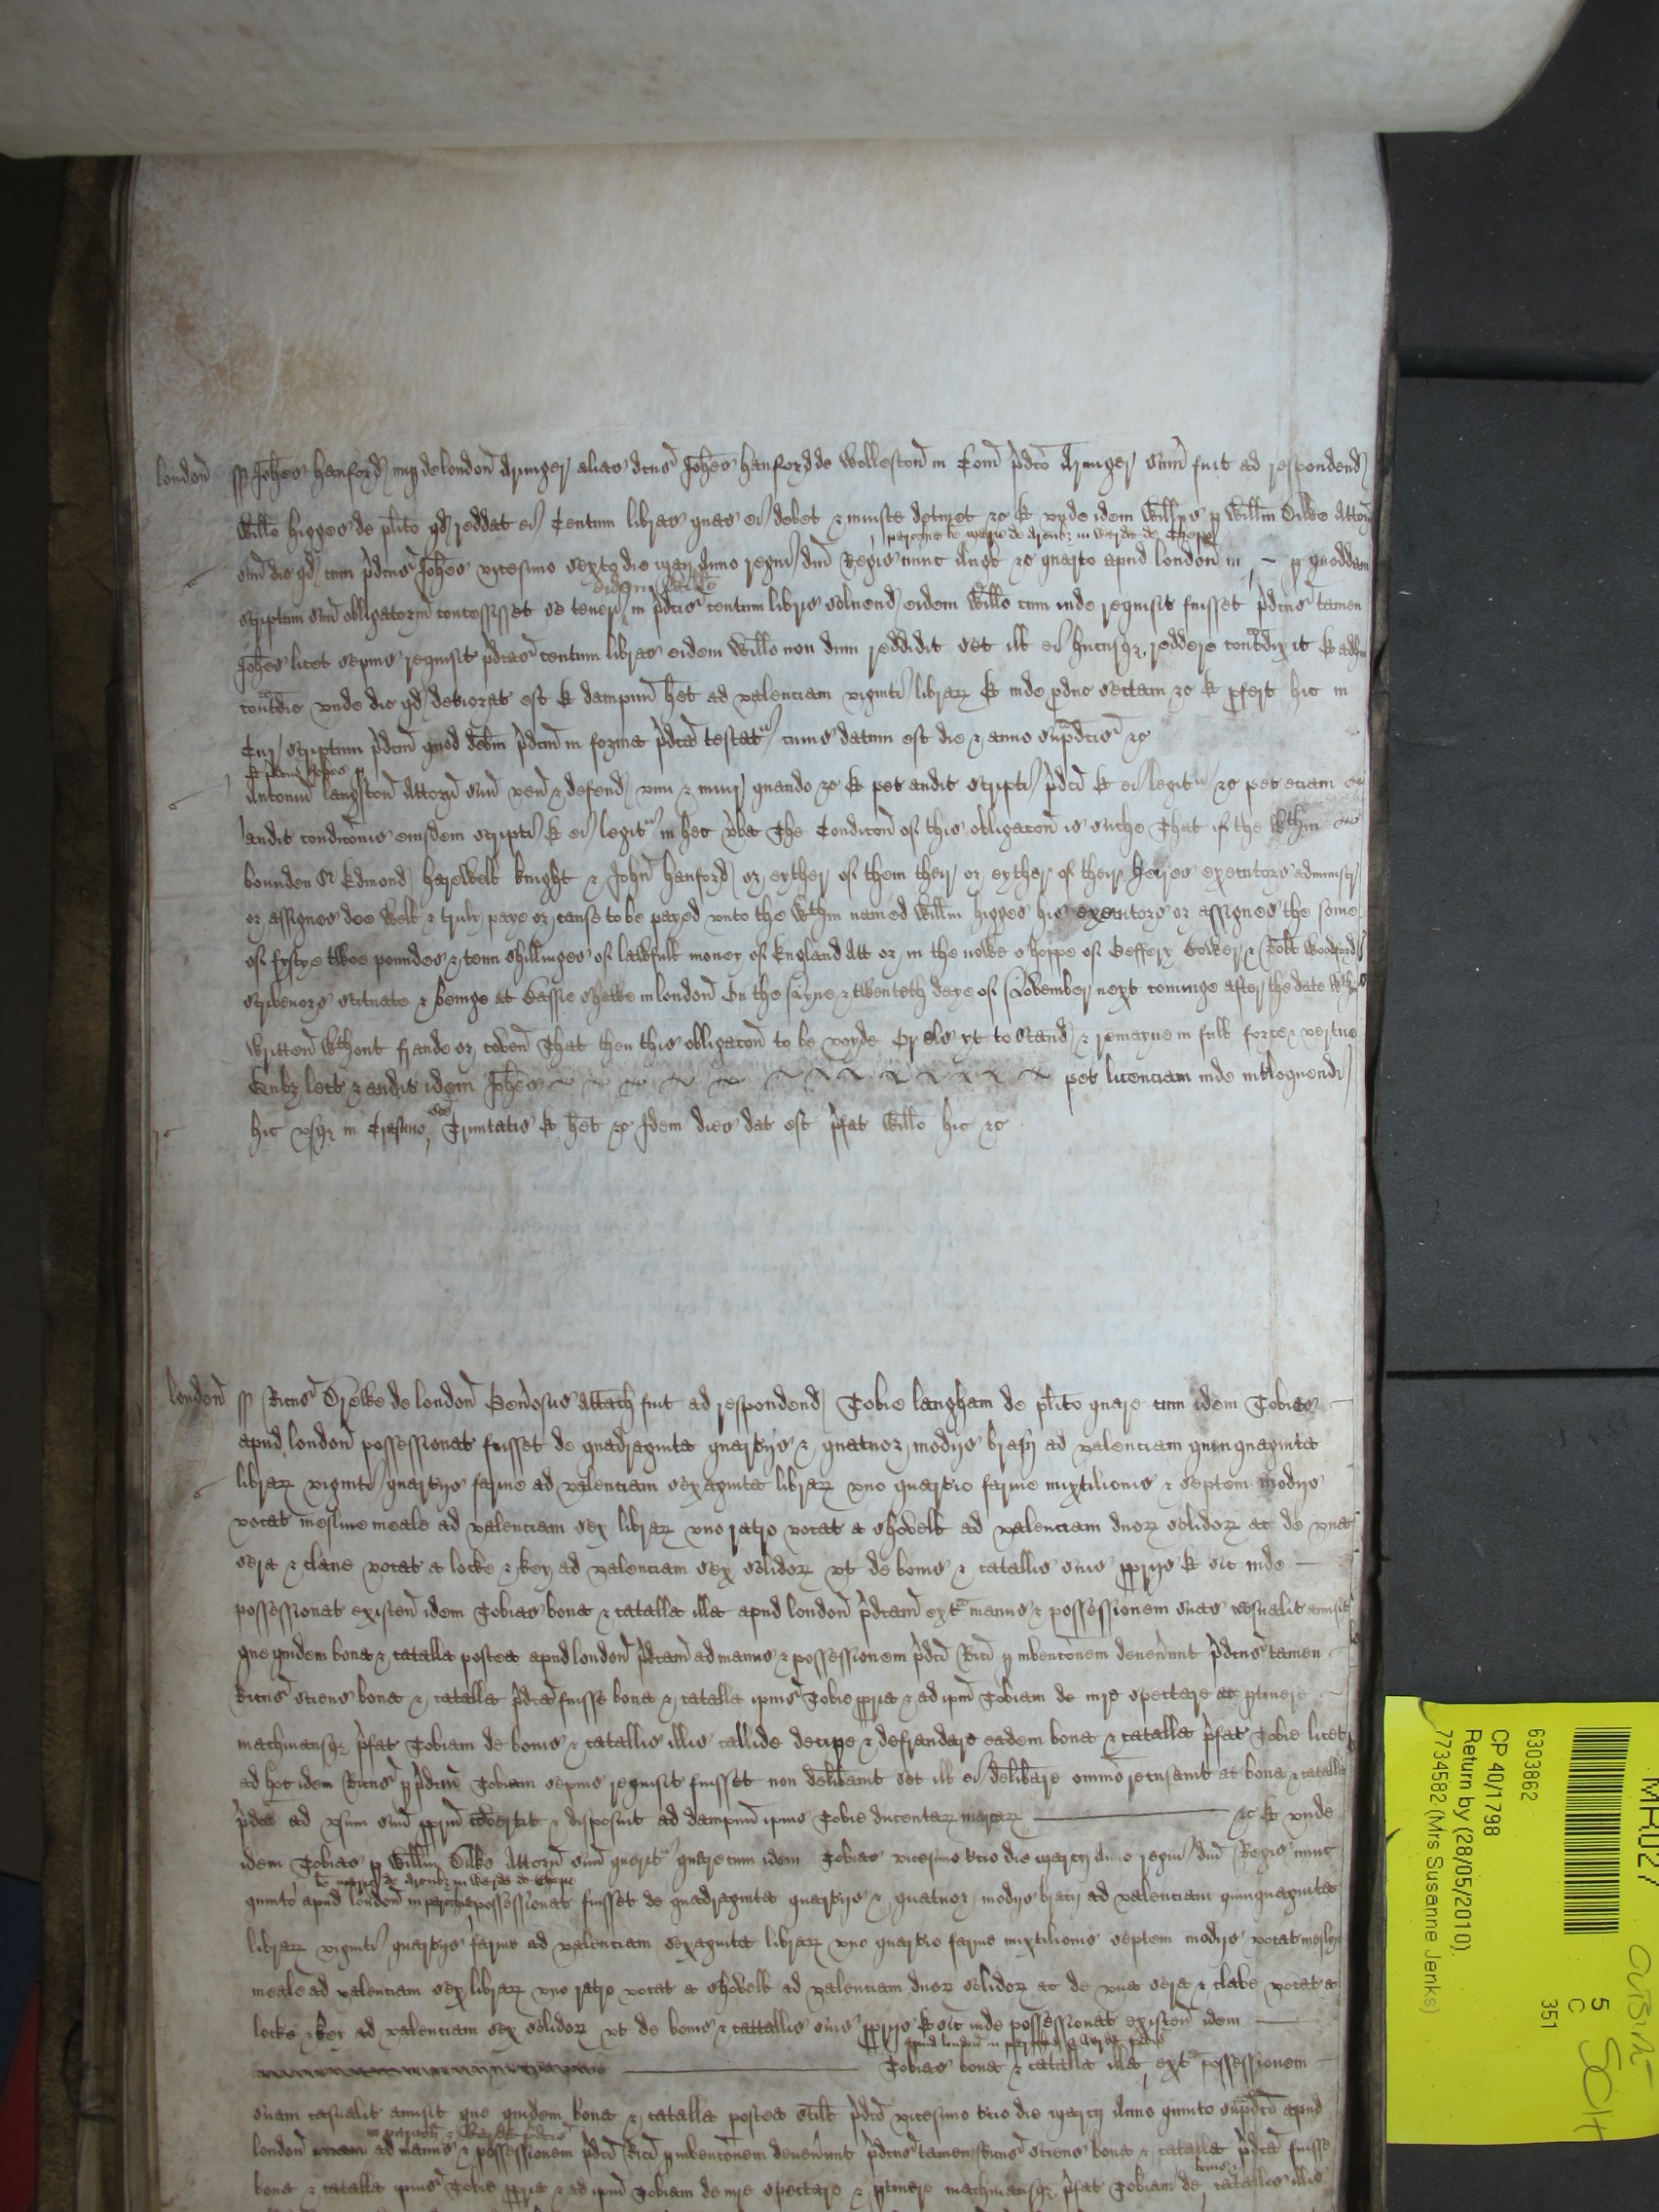 london ss Johes hanford nup de london Armiger alias dcus Johes hanford de Wolleston in Com pdco Armiger sum fuit ad respondend
Willo higges de plito qd reddat ei Centum libras quas ei debet & iniuste detinet &c Et unde idem Willus p Willm Dilke Attorn
parochia be marie de Arcubz in Warda de Chepe
suu dic qd cum pdcus Johes vicesimo sexto die maij Anno regni dni Regis nunc Angl &c quarto apud london in p quoddam
eidem Willo
scriptum suu obligatorm concessisset se teneri in pdcis centum libris solvend eidem Willo cum inde requisit fuisset pdcus tamen
Johes licet sepius requisit pdcas centum libras eidem Willo non dum reddidit set ill ei hucusqz reddere contradixit Et adhuc
contradic unde dic qd deteriorat est Et dampnu het ad valenciam viginti librarz Et inde pduc sectam &c Et pfert hic in
Cur scriptum pdcm quod debm pdcm in forma pdca testat cuius datum est die & anno supradcis &c
Et pdcus Johes p
Antoniu langston Attorn suu ven & defend vim & iniur quando &c Et pet audit scripti pdci Et ei legit &c pet eciam
audit condiconis eiusdem scripti Et ei legit in hec vba The Condicon of this obligacon is suche That if the Wthin
bounden Sr Edmond harewell knight & John hanford or eyther of them their or eyther of their heires executors administr
or assignes doe well & truly paye or cause to be payed unto the Wthin named Willm higges his executors or assignes the some
of fystye twoe poundes & tenn shillinges of lawfull money of England Att or in the nowe shoppe of Geffery Bower & Robt Woodford
scrivenors scituate & beinge at Bassie shawe in london On the syne & twenteth daye of November next cominge after the date Wthin
written Wthout fraude or coven That then this obligacon to be voyde Or els yt to stand & remayne in full force & vertue
Quibz lect & audit idem Johes pet licenciam inde intloquendi
sce
hic usqz in Crastino Trinitatis Et het &c Idem dies dat est pfat Willo hic &c
london ss Ricus Drewe de london Generosus Attach fuit ad respondend Tobie langham de plito quare cum idem Tobias
apud london possessionat fuisset de quadraginta quartijs & quatuor modijs brasij ad valenciam quinquaginta
librarz viginti quartijs farine ad valenciam sexaginta librarz uno quartio farine mixtilionis & septem modijs
vocat mesline meale ad valenciam sex librarz uno ratro vocat a shovell ad valenciam duorz solidorz ac de una
sera & clave vocat a locke & key ad valenciam sex solidorz ut de bonis & catallis suis pprijs Et sic inde
possessionat existen idem Tobias bona & catalla illa apud london pdcam extra manus & possessionem suas casualit amisit
que quidem bona & catalla postea apud london pdcam ad manus & possessionem pdci Rici p invenconem devenerunt pdcus tamen
Ricus sciens bona & catalla pdca fuisse bona & catalla ipius Tobie ppria & ad ipm Tobiam de iure spectare ac ptinere
machinansqz pfat Tobiam de bonis & catallis illis callide decipe & defraudare eadem bona & catalla pfat Tobie licet
ad hoc idem Ricus p pdcm Tobiam sepius requisit fuisset non delibavit set ill ei delibare omnino recusavit ac bona & catalla
pdca ad usum suu ppriu convertit & disposuit ad dampnu ipius Tobie ducentarz marcarz &c Et unde
idem Tobias p Willm Dilke Attorn suu querit quare cum idem Tobias vicesimo tcio die marcij Anno regni dni Regis nunc
be marie de Arcubz in Warda de Chepe
quinto apud london in parochia possessionat fuisset de quadraginta quartijs & quatuor modijs brasij ad valenciam quinquaginta
librarz viginti quartijs farine ad valenciam sexaginta librarz uno quartio farine mixtilionis septem modijs vocat meslyn
meale ad valenciam sex librarz uno ratro vocat a shovell ad valenciam duorz solidorz ac de una sera & clave vocat a
locke & key ad valenciam sex solidorz ut de bonis & cattallis suis pprijs Et sic inde possessionat existen idem
apud london in parochia & Warda pdcis
Tobias bona & catalla illa extra possessionem
suam casualit amisit que quidem bona & catalla postea scilt pdco vicesimo tcio die marcij Anno quinto supradco apud
in parochia & Warda pdcis
london ad manus & possessionem pdci Rici p invenconem devenerunt pdcus tamen Ricus sciens bona & catalla pdca fuisse
bonis &
bona & catalla ipius Tobie ppria & ad ipm Tobiam de iure spectare & ptinere machinansqz pfat Tobiam de catallis illis
MR027
6303862
CP 40/1798
Return by (28/05/2010)
7734582 (Mrs Susanne Jenks)
5
C
351